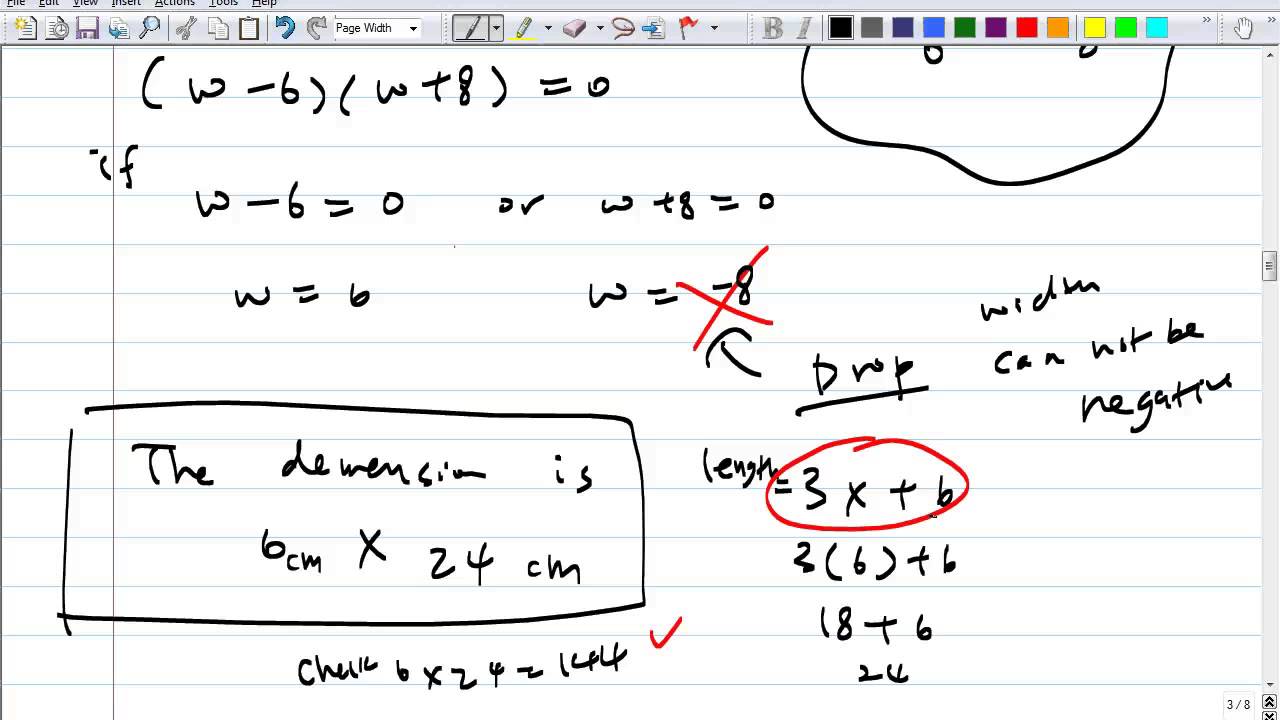 File Edit View Insert Actions Tools Help
Page Width
B I
(w - 6)(w + 8) = 0
if
w - 6 = 0 or w + 8 = 0
w = 6 w = -8
width
can not be
negative
Drop
The demension is
6cm X 24 cm
length = 3x + 6
3(6) + 6
18 + 6
24
Check 6 x 24 = 144
3 / 8